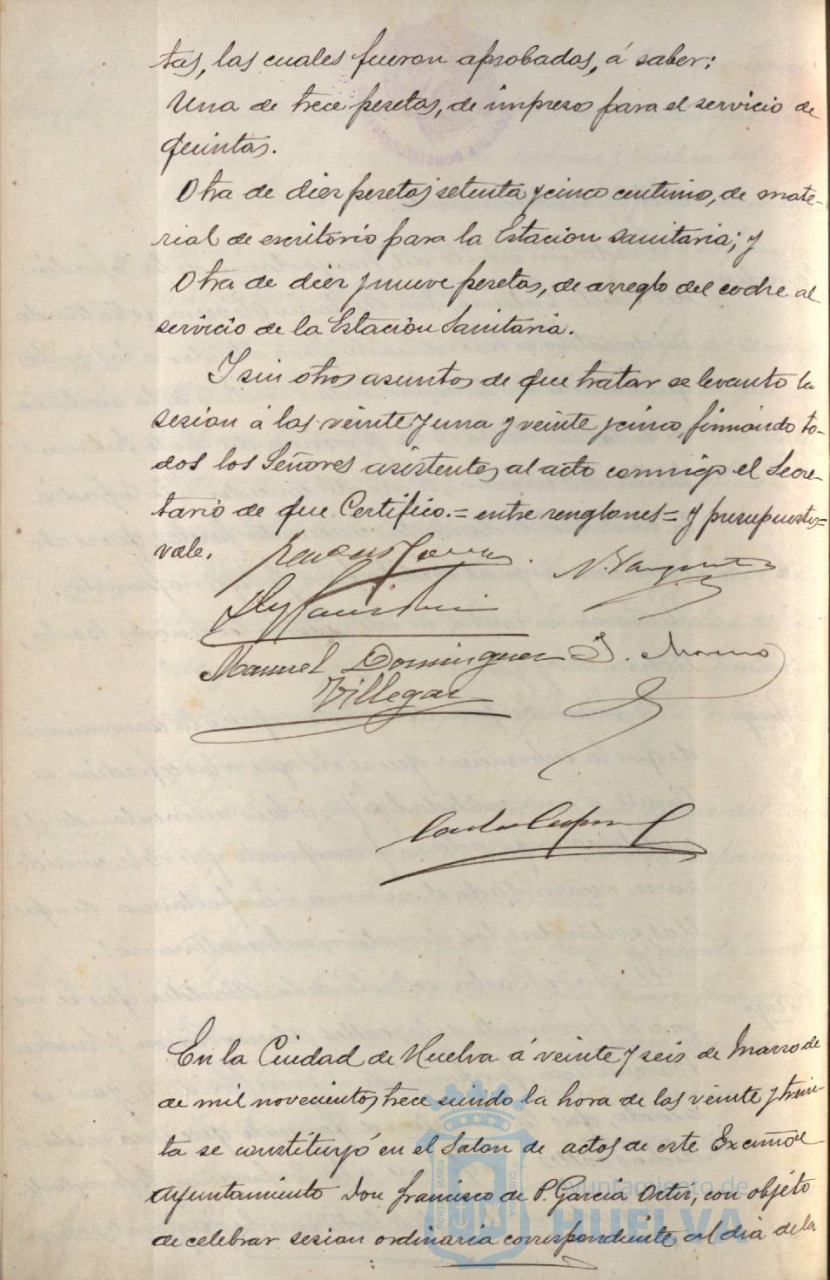 tas, las cuales fueron aprobadas, á saber:
Una de trece pesetas, de impresos para el servicio de
quintas.
Otra de diez pesetas setenta y cinco centimos, de mate-
rial de escritorio para la Estacion sanitaria; y
Otra de diez y nueve pesetas, de arreglo del coche al
servicio de la Estación Sanitaria.
Y sin otros asuntos de que tratar se levanto la
sesion á las veinte y una y veinte y cinco, firmando to-
dos los Señores asistentes al acto conmigo el Secre-
tario de que Certifico.= entre renglones= y presupuestos=
vale.
Manuel Dominguez J. Moreno
Villegas
En la Ciudad de Huelva á veinte y seis de Marzo de
de mil novecientos trece siendo la hora de las veinte y trein-
ta se constituyó en el Salon de actos de este Excmo
Ayuntamiento Don Francisco de P. García Ortiz, con objeto
de celebrar sesion ordinaria correspondiente al dia de la
Ayuntamiento de
HUELVA